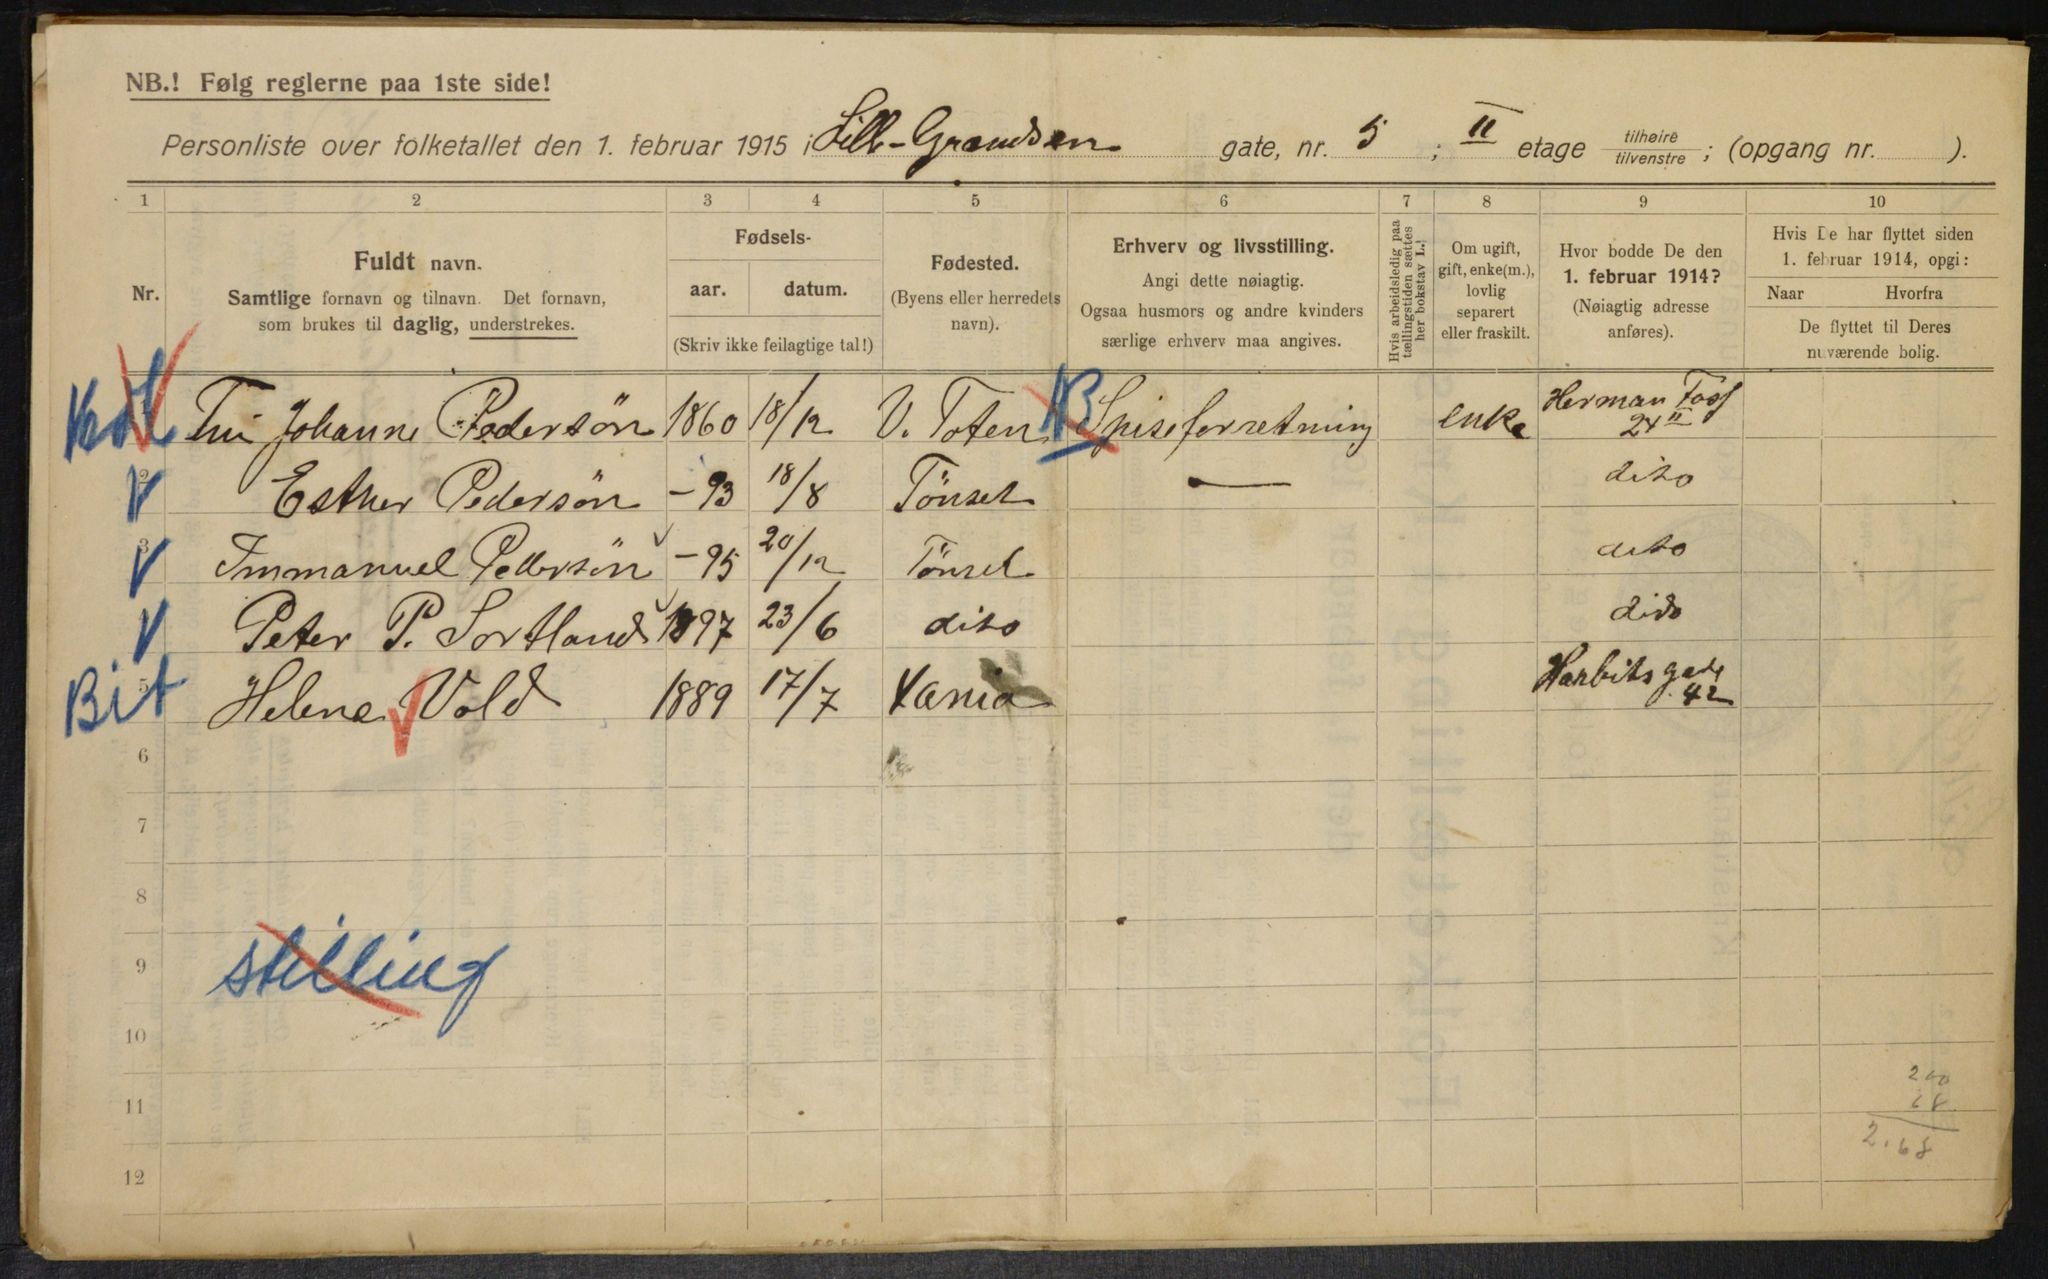 NB.! Følg reglerne paa 1ste side!
Personliste over folketallet den 1. februar 1915 i Lille-Grændsen gate, nr. 5 ; II etage tilhøire tilvenstre ; (opgang nr. ).
1 2 3 4 5 6 7 8 9 10
Nr.
Fuldt navn.
Samtlige fornavn og tilnavn. Det fornavn,
som brukes til daglig, understrekes.
Fødsels-
aar. datum.
(Skriv ikke feilagtige tal!)
Fødested.
(Byens eller herredets
navn).
Erhverv og livsstilling.
Angi dette nøiagtig.
Ogsaa husmors og andre kvinders
særlige erhverv maa angives.
Hvis arbeidsledig paa
tællingstiden sættes
her bokstav L.!
Om ugift,
gift, enke(m.),
lovlig
separert
eller fraskilt.
Hvor bodde De den
1. februar 1914?
(Nøiagtig adresse
anføres).
Hvis De har flyttet siden
1. februar 1914, opgi:
Naar Hvorfra
De flyttet til Deres
nuværende bolig.
Johanne Pedersön 1860 18/12 V. Toten Spiseforretning enke Herman Foss 24 II
2 Esther Pedersön - 93 18/8 Tönset — dito
3 Immanuel Pedersön - 95 20/12 Tönset dito
Peter P. Sortland 1897 23/6 dito dido
Bit 5 Helene Vold 1889 17/7 Xania Harbitsgade 42
6
7
8
9 stilling
10
11
12
200
68
2.68